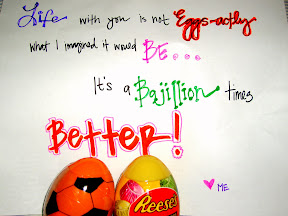 Life with you is not Eggs-actly
what I imagined it would BE....
It's a Bajillion times
Better!
♥ ME
REESE'S